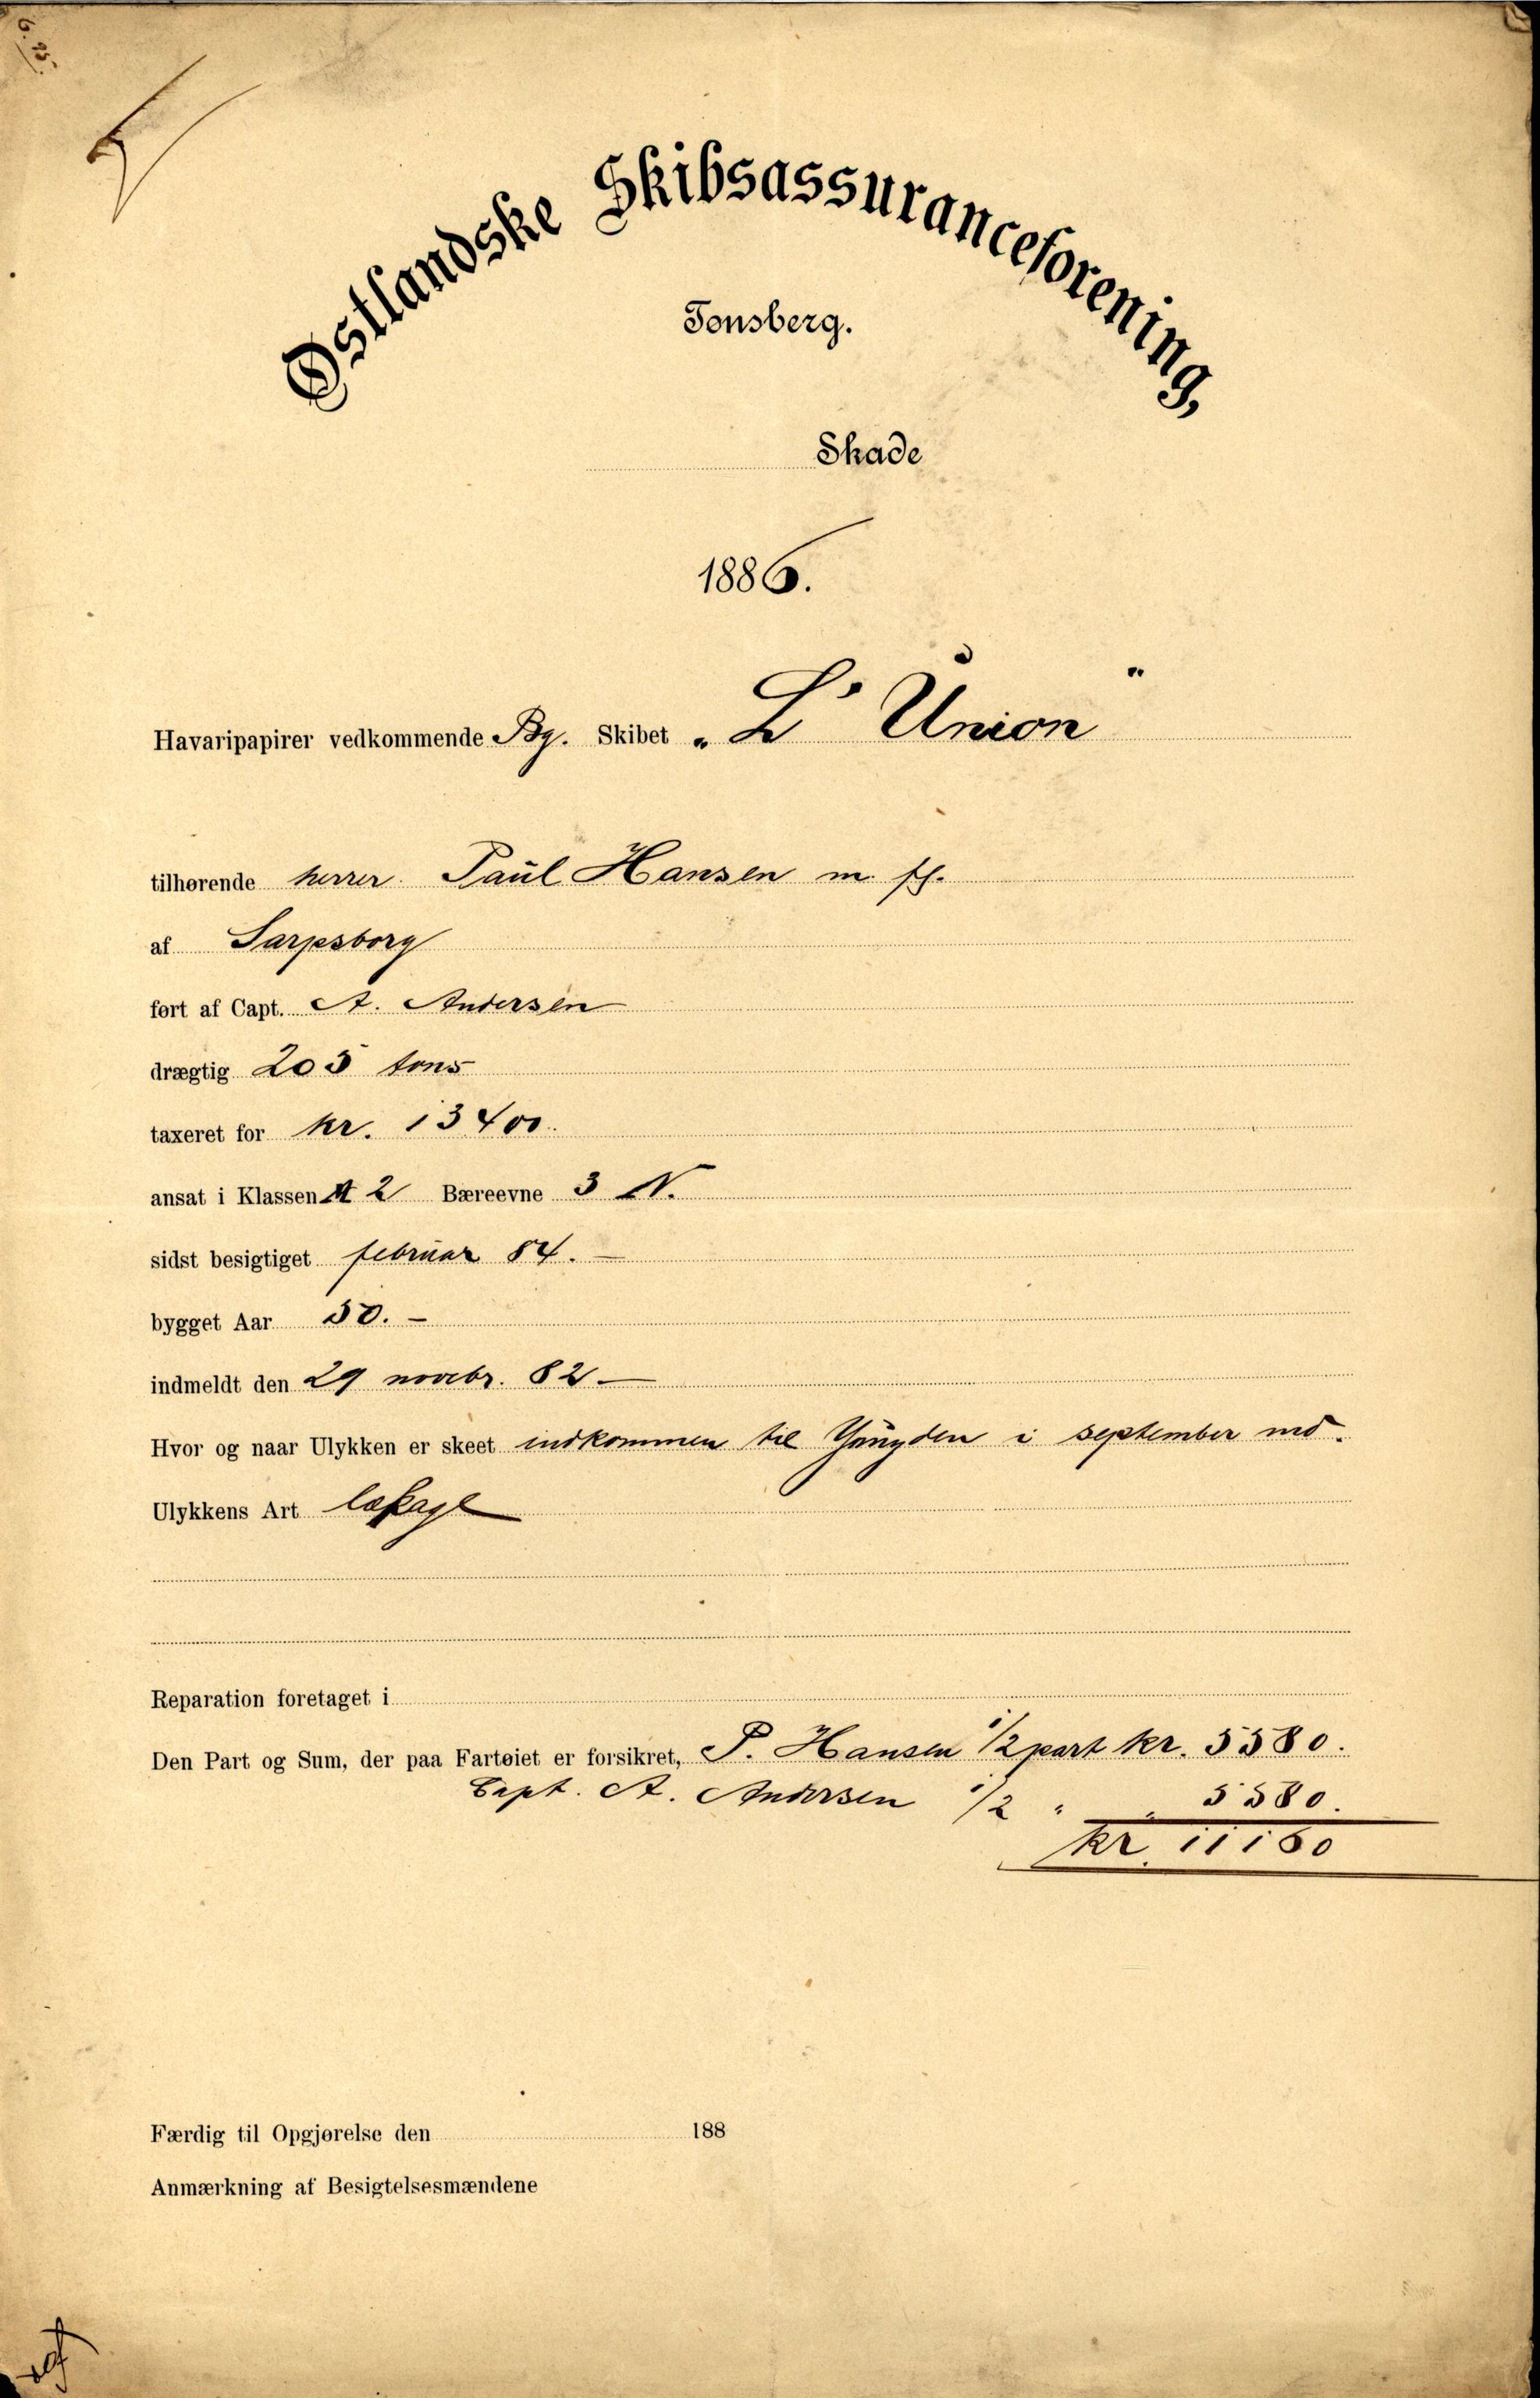 6. 95.
Østlandske Skibsassuranceforening,
Tønsberg.
Skade
1886.
Havaripapirer vedkommende Bg. Skibet „L' Union"
tilhørende herrer Paul Hansen m. fl.
af Sarpsborg
ført af Capt. A. Andersen
drægtig 205 tons
taxeret for kr. 13400.
ansat i Klassen A 2 Bæreevne 3 N.
sidst besigtiget februar 84. —
bygget Aar 50. —
indmeldt den 29 novebr. 82 —
Hvor og naar Ulykken er skeet indkommen til i september md.
Ulykkens Art lækage
Reparation foretaget i
Den Part og Sum, der paa Fartøiet er forsikret, P. Hansen 1/2 part kr. 5580.
Capt. A. Andersen 1/2 " " 5580.
kr. 11160
Færdig til Opgjørelse den 188
Anmærkning af Besigtelsesmændene